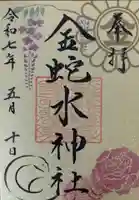 奉拝
金蛇水神社
令和七年 五月 十日